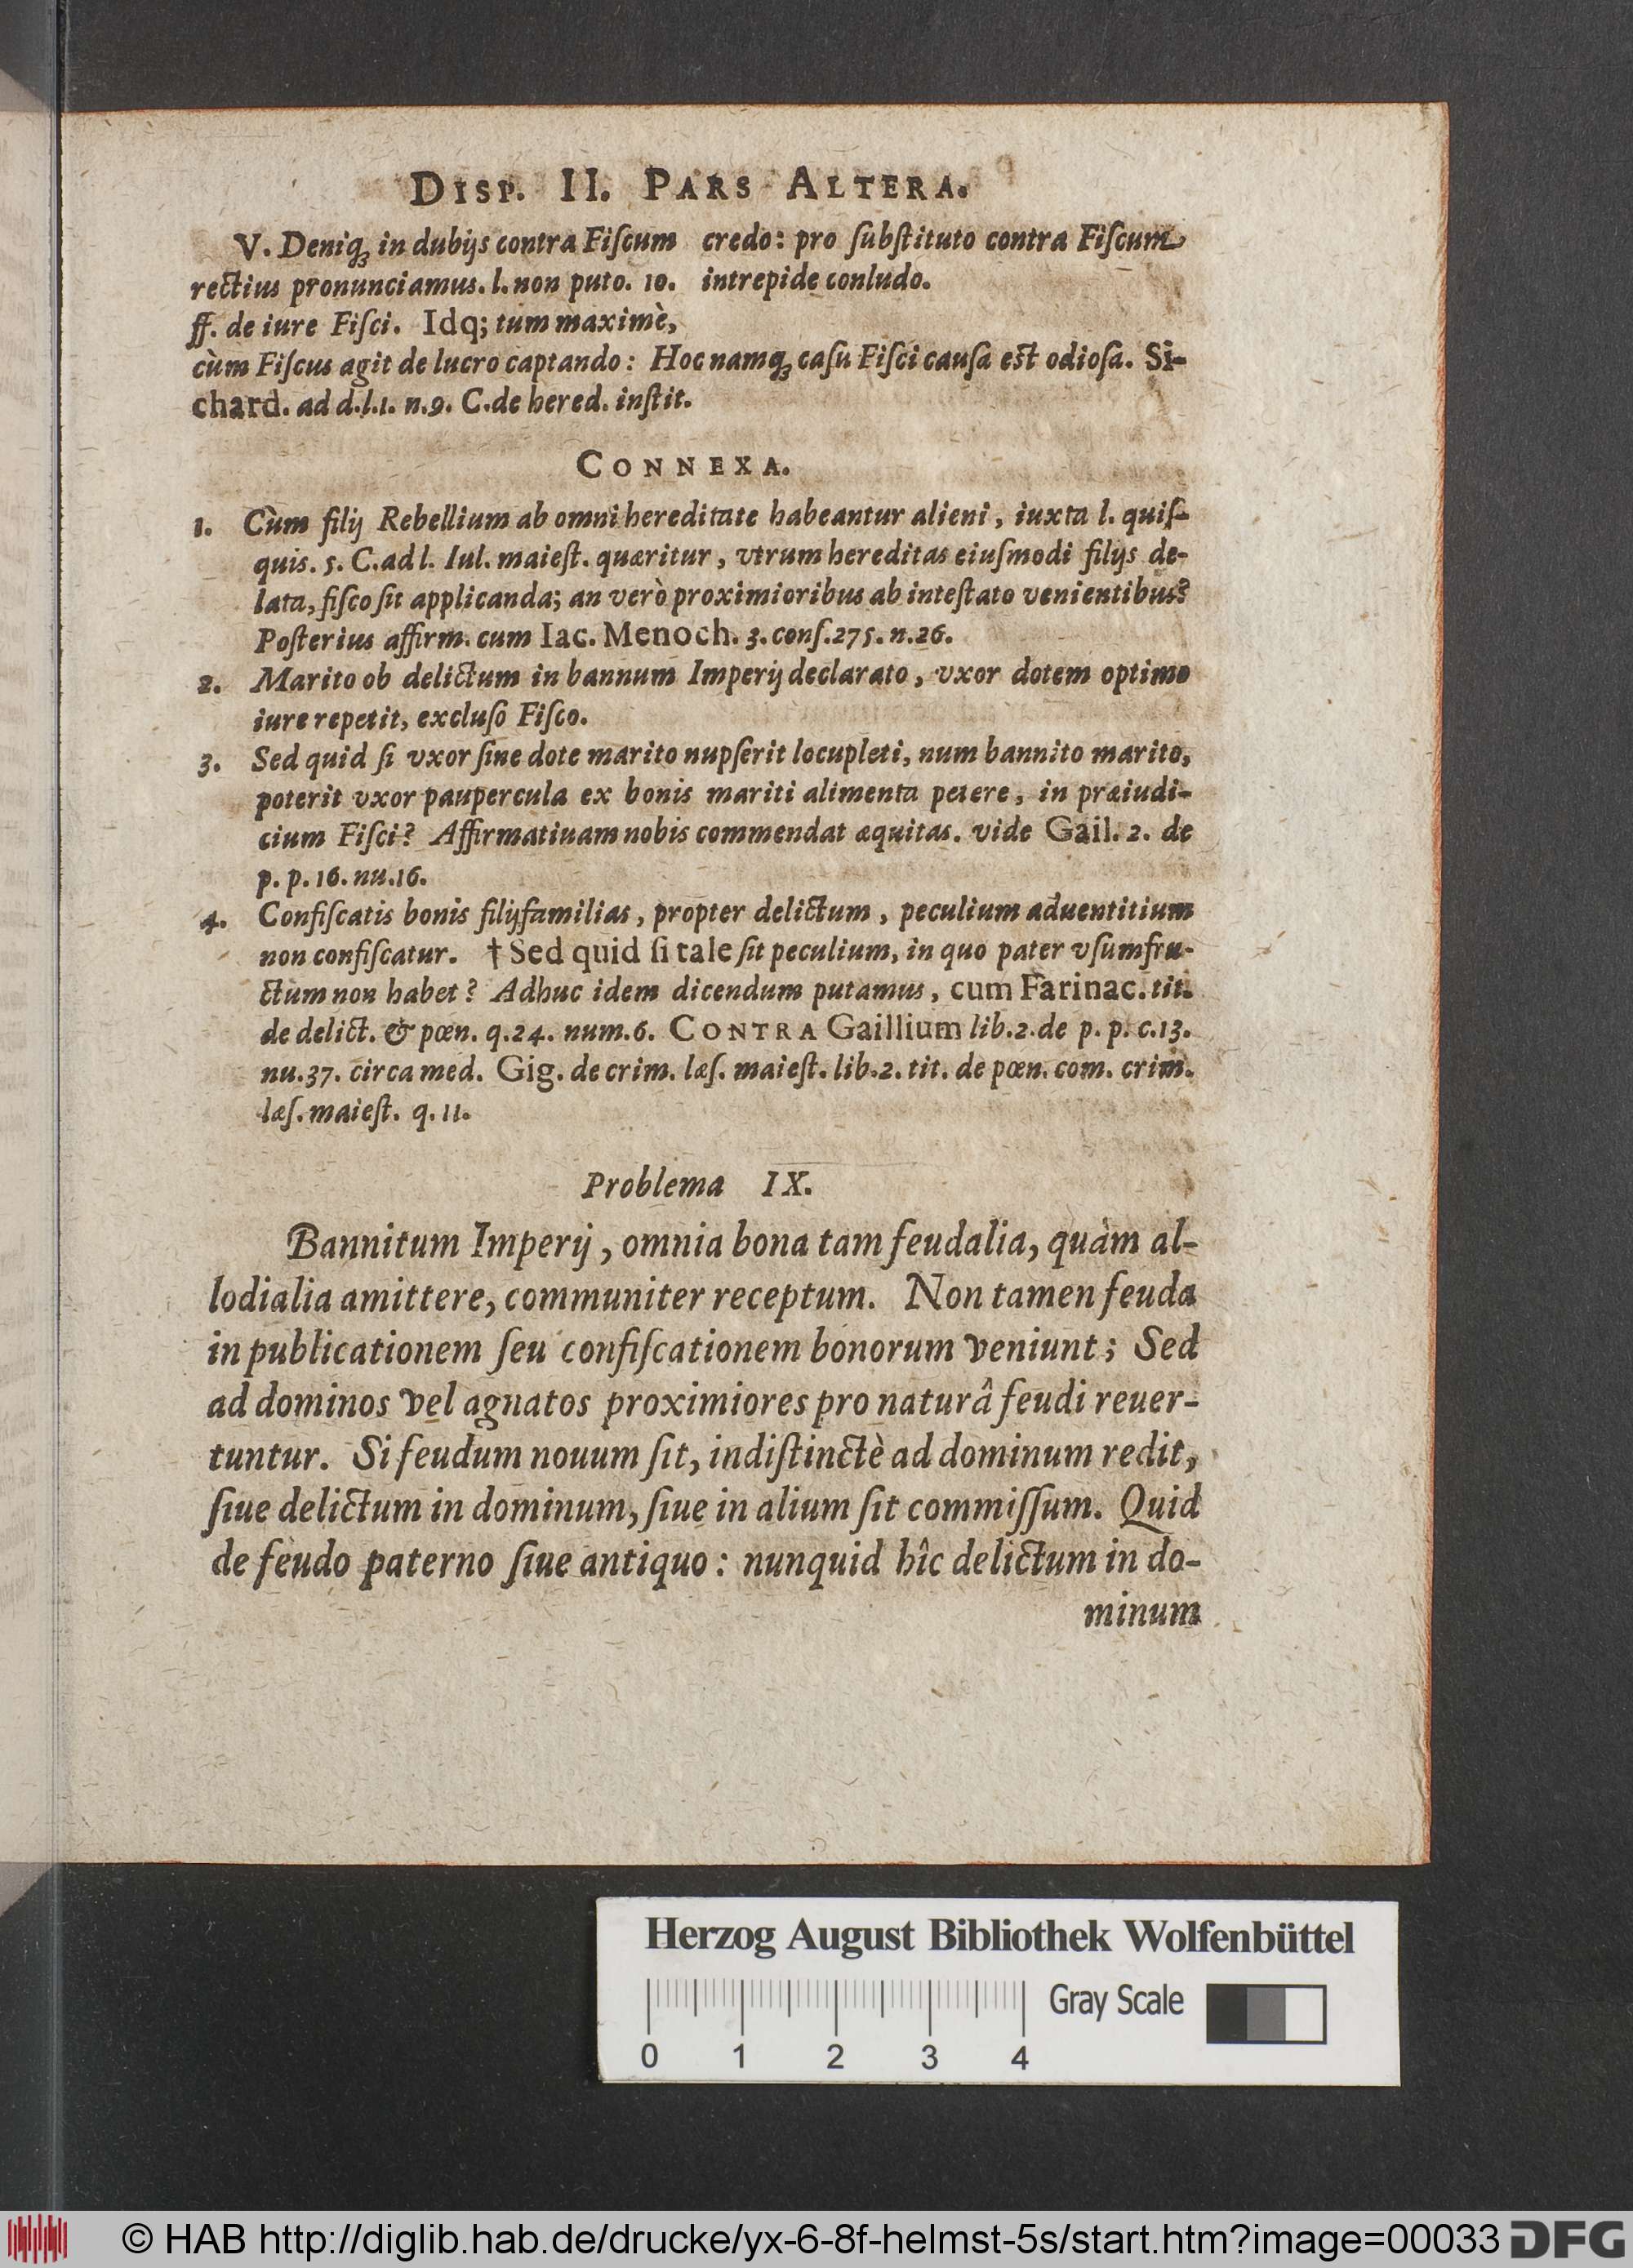 DISP. II. PARS ALTERA.
V. Deniq́ꝫ in dubijs contra Fiſcum
rectius pronunciamus. l. non puto. 10.
ff. de iure Fiſci. Idq; tum maximè,
credo: pro ſubſtituto contra Fiſcum
intrepide conludo.
cùm Fiſcus agit de lucro captando: Hoc namq́ꝫ caſu Fiſci cauſa est odioſa. Si-
chard. ad d.l.1. n.9. C. de hered. inſtit.
CONNEXA.
1. Cùm filij Rebellium ab omni hereditate habeantur alieni, iuxta l. quiſ-
quis. 5. C. ad l. Iul. maieſt. quæritur, vtrum hereditas eiuſmodi filijs de-
lata, fiſco ſit applicanda; an verò proximioribus ab inteſtato venientibus?
Poſterius affirm. cum Iac. Menoch. 3. conſ. 275. n. 26.
2. Marito ob delictum in bannum Imperij declarato, vxor dotem optimo
iure repetit, excluſo Fiſco.
3. Sed quid ſi vxor ſine dote marito nupſerit locupleti, num bannito marito,
poterit vxor paupercula ex bonis mariti alimenta petere, in præiudi-
cium Fiſci? Affirmatiuam nobis commendat æquitas. vide Gail. 2. de
p. p. 16. nu. 16.
4. Confiſcatis bonis filijfamilias, propter delictum, peculium aduentitium
non confiſcatur. † Sed quid ſi tale ſit peculium, in quo pater vſumfru-
ctum non habet? Adhuc idem dicendum putamus, cum Farinac. tit.
de delict. & pœn. q. 24. num. 6. CONTRA Gaillium lib. 2. de p. p. c. 13.
nu. 37. circa med. Gig. de crim. læſ. maieſt. lib. 2. tit. de pœn. com. crim.
læſ. maieſt. q. 11.
Problema IX.
Bannitum Imperij, omnia bona tam feudalia, quàm al-
lodialia amittere, communiter receptum. Non tamen feuda
in publicationem ſeu confiſcationem bonorum veniunt; Sed
ad dominos vel agnatos proximiores pro naturâ feudi reuer-
tuntur. Si feudum nouum ſit, indiſtinctè ad dominum redit,
ſiue delictum in dominum, ſiue in alium ſit commiſſum. Quid
de feudo paterno ſiue antiquo: nunquid hîc delictum in do-
minum
Herzog August Bibliothek Wolfenbüttel
Gray Scale
0 1 2 3 4
© HAB http://diglib.hab.de/drucke/yx-6-8f-helmst-5s/start.htm?image=00033 DFG